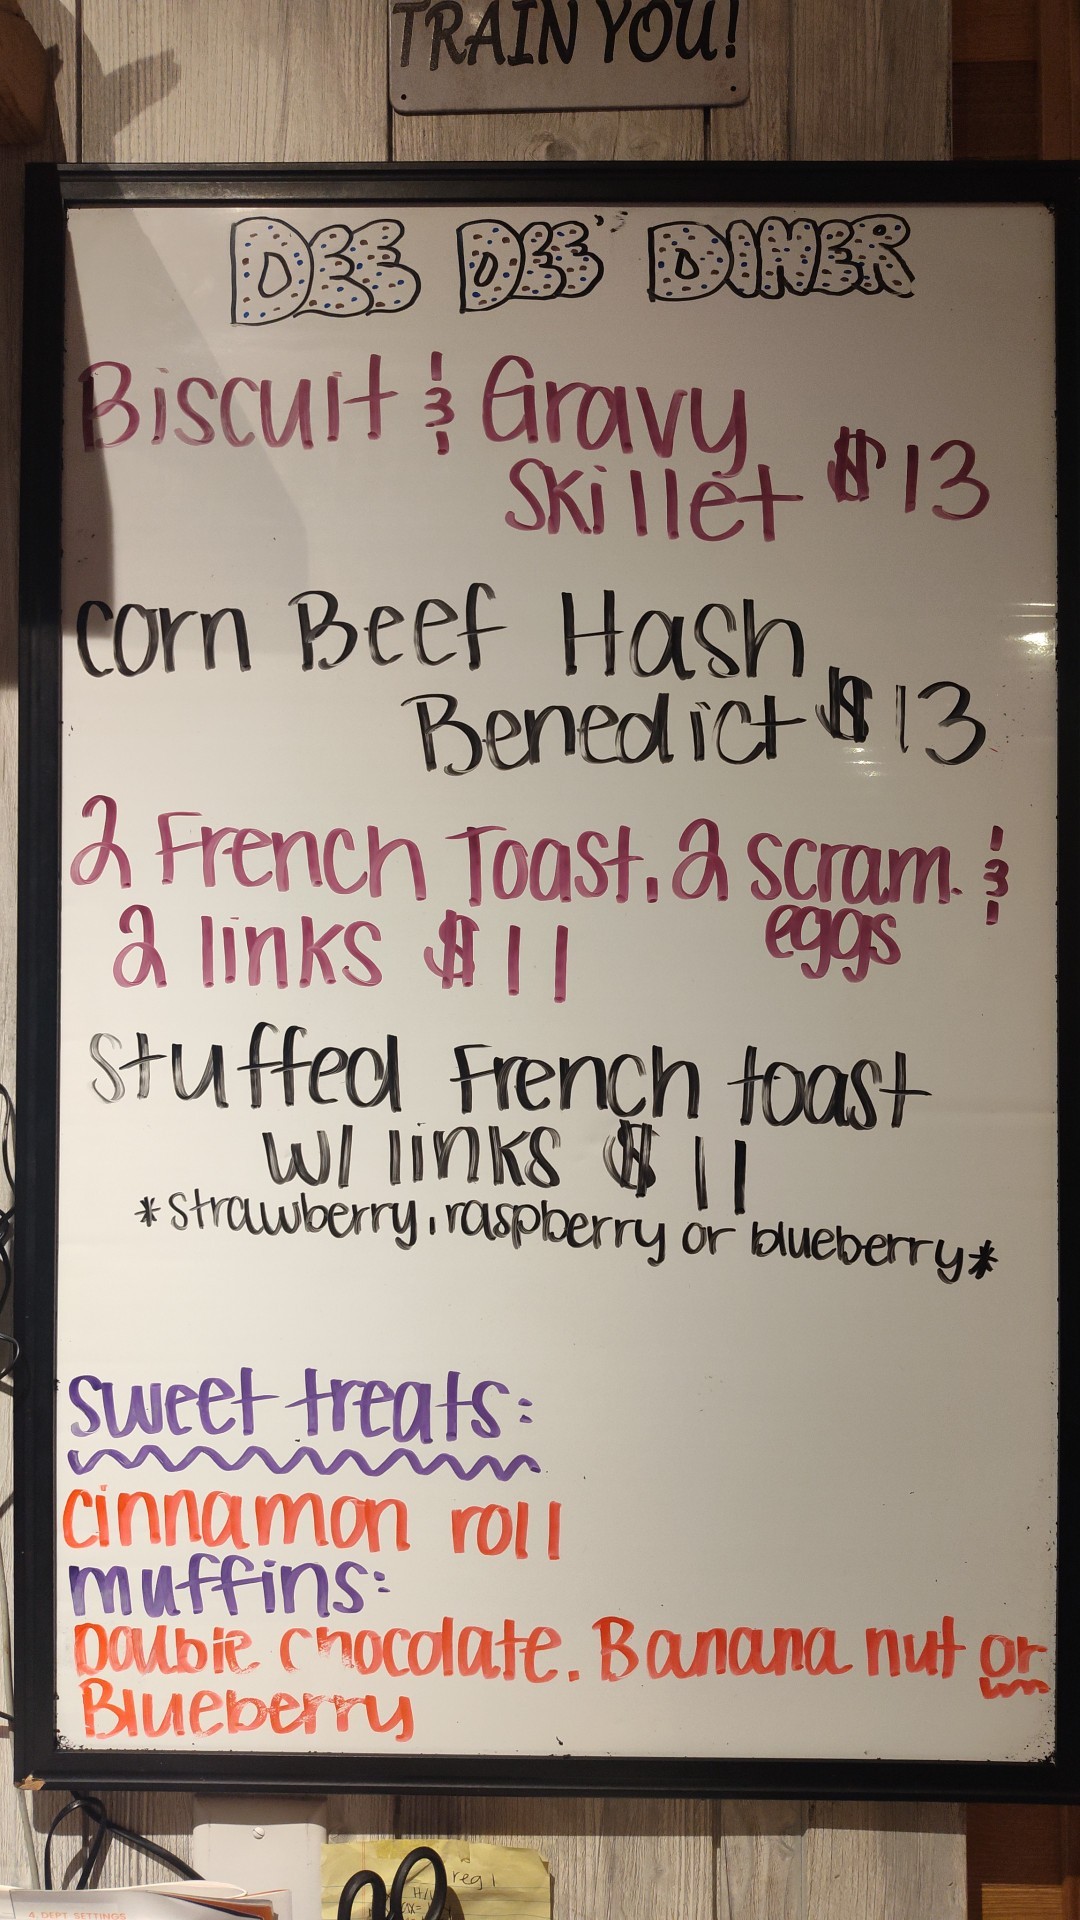 TRAIN YOU!
DEE DEE' DINER
Biscuit & Gravy
Skillet $13
corn Beef Hash
Benedict $13
2 French Toast, 2 scram. &
eggs
2 links $11
Stuffed French toast
w/ links $11
*strawberry, raspberry or blueberry*
sweet treats:
cinnamon roll
muffins:
Double chocolate, Banana nut or
Blueberry
reg 1
4. DEPT SETTINGS